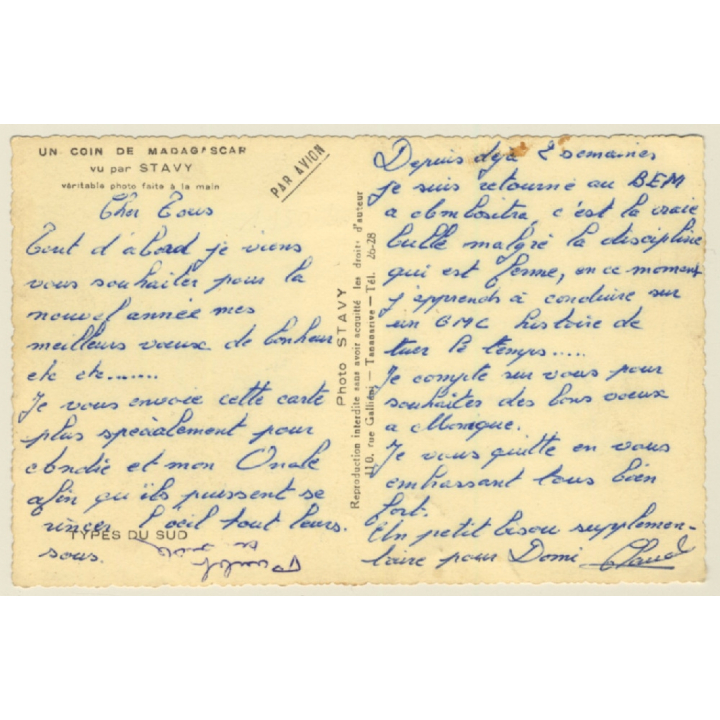 UN COIN DE MADAGASCAR
vu par STAVY
véritable photo faite à la main
PAR AVION
Cher Tous
Tout d'abord je viens
vous souhaiter pour la
nouvel année mes
meilleurs vœux de bonheur
etc etc........
Je vous envoie cette carte
plus spécialement pour
André et mon Oncle
afin qu'ils puissent se
rincer l'œil tout leurs.
TYPES DU SUD
sous.
Photo STAVY
Reproduction interdite sans avoir acquitté les droits d'auteur
110, rue Galliéni — Tananarive — Tél. 26-28
Depuis déjà 2 semaines
je suis retourné au BEM
a Ambositra, c'est la vraie
bulle malgré la discipline
qui est ferme, en ce moment
j'apprends à conduire sur
un GMC histoire de
tuer le temps.....
Je compte sur vous pour
souhaiter des bons vœux
a Monique.
Je vous quitte en vous
embrassant tous bien
fort.
Un petit bisou supplémen-
taire pour Domi Claude